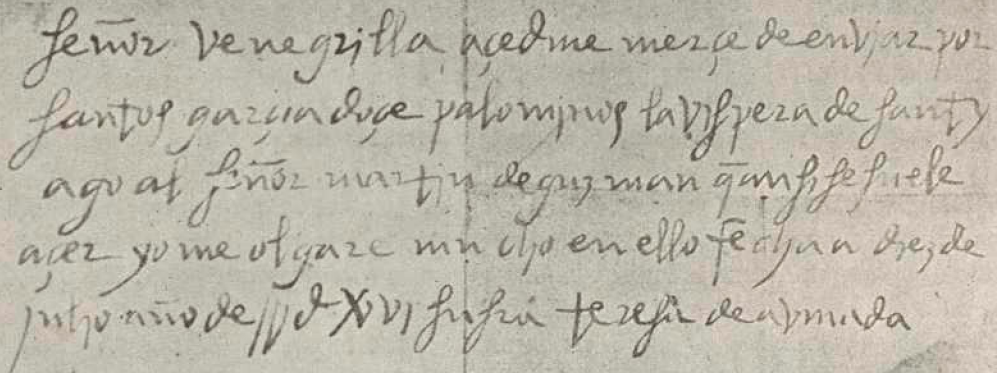 señor venegrilla açedme merçe de enviar por
santos garçia doçe palominos la vispera de santy
ago al señor martin de guzman q̃ ansi se suele
açer yo me olgare mucho en ello fecha a diez de
julio año de jUdXVI
teresa de ahumada